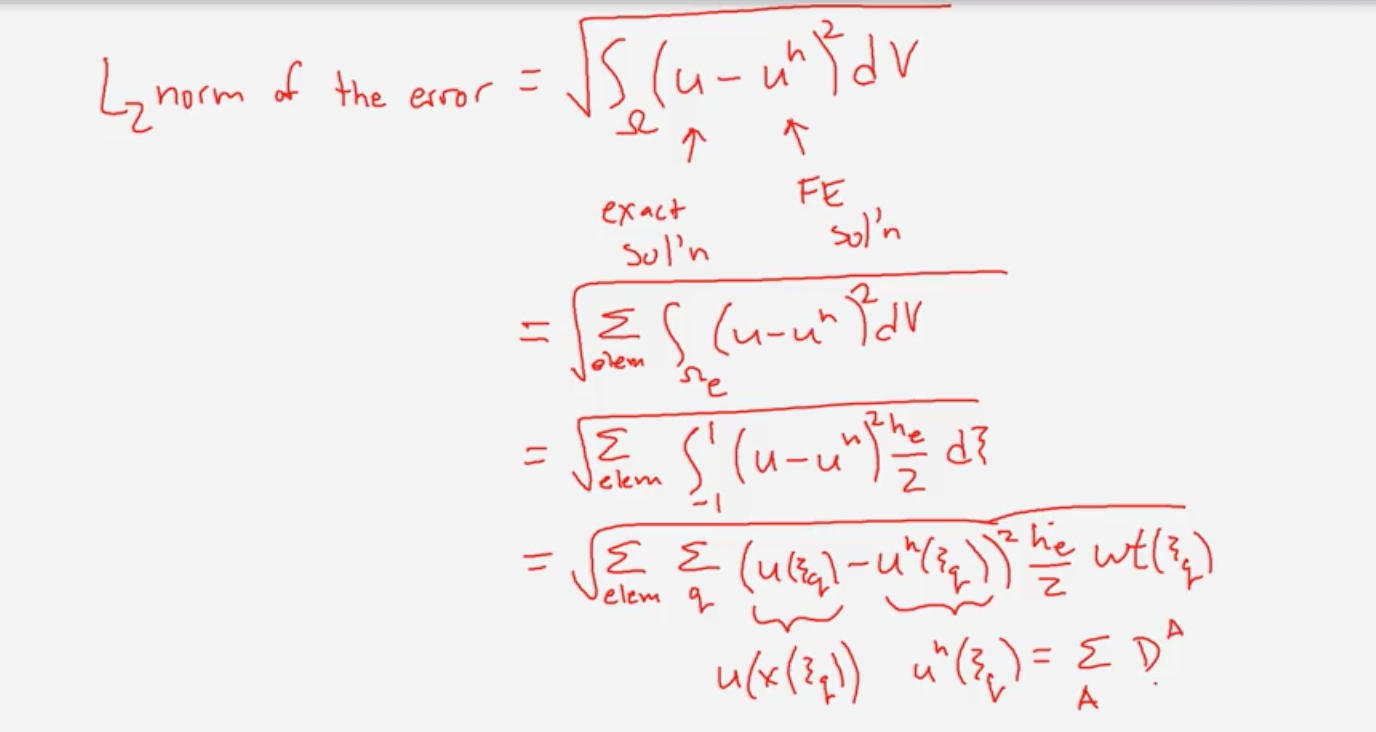 L₂ norm of the error = √(∫_Ω (u - u^h)² dV)
↑ ↑
exact sol'n FE sol'n
= √(Σ_elem ∫_Ωe (u - u^h)² dV)
= √(Σ_elem ∫_{-1}^{1} (u - u^h)² h_e/2 dξ)
= √(Σ_elem Σ_q (u(ξ_q) - u^h(ξ_q))² h_e/2 wt(ξ_q))
u(x(ξ_q)) u^h(ξ_q) = Σ_A D^A